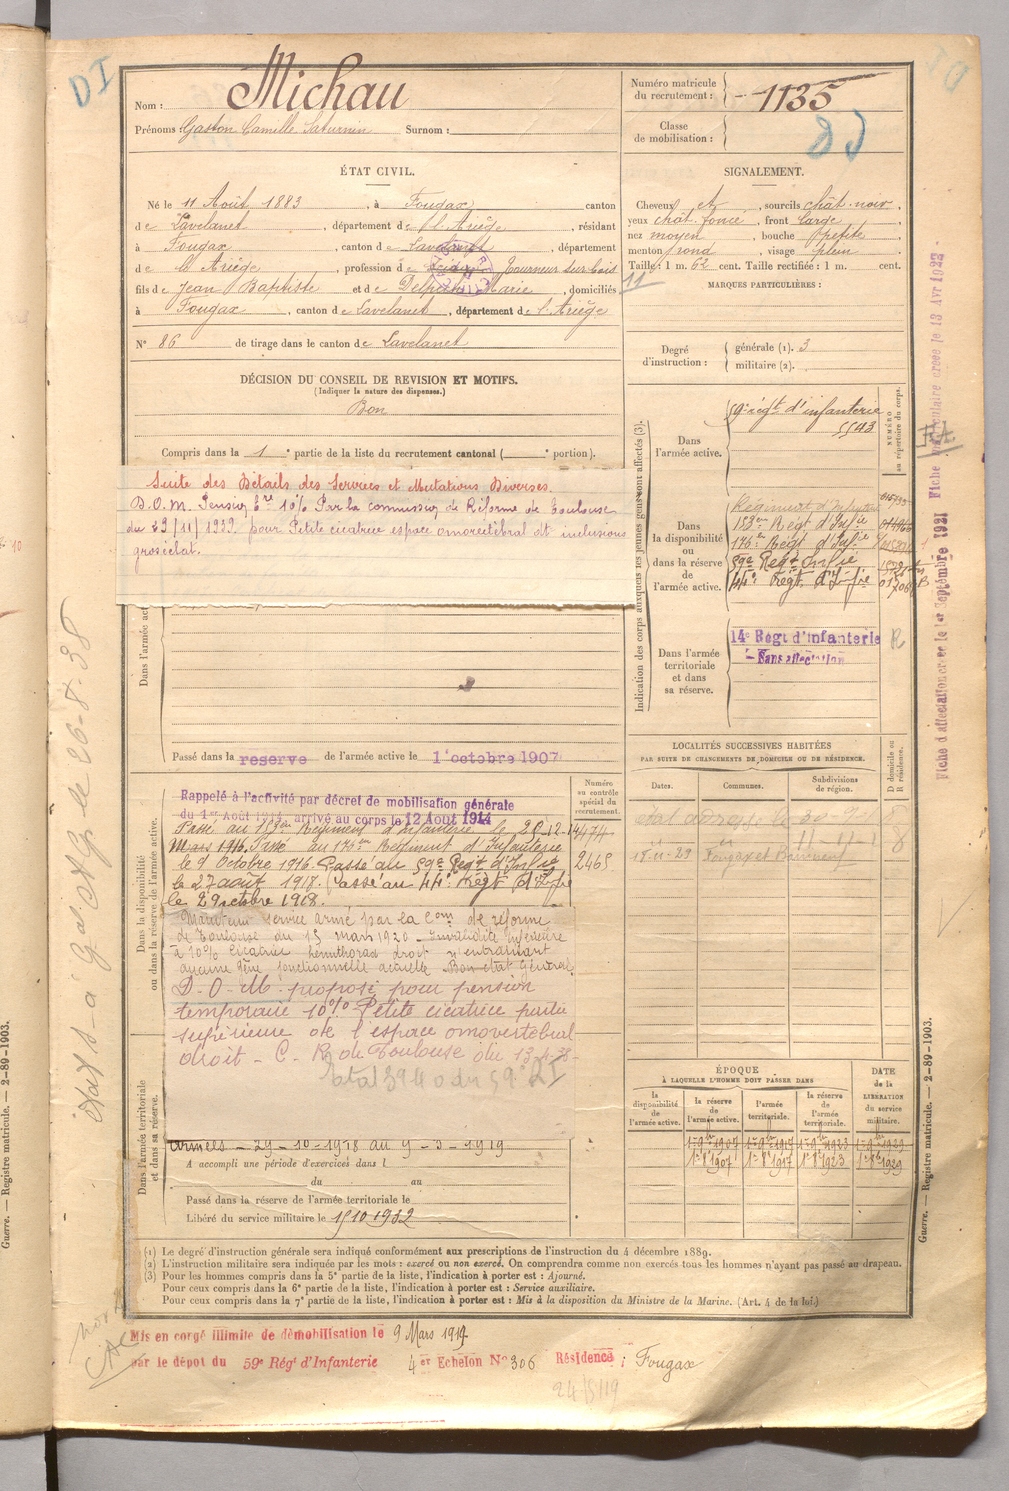 DI
Nom : Michau
Prénoms : Gaston Camille Saturnin Surnom :
Numéro matricule du recrutement : 1135
Classe de mobilisation :
ÉTAT CIVIL.
Né le 11 Août 1883, à Fougax canton
de Lavelanet, département de l'Ariège, résidant
à Fougax, canton de Lavelanet, département
de l'Ariège, profession de Tourneur sur bois
fils de Jean Baptiste et de Marie, domiciliés
à Fougax, canton de Lavelanet, département de l'Ariège
N° 86 de tirage dans le canton de Lavelanet
SIGNALEMENT.
Cheveux et, sourcils chât. noir,
yeux chât. foncé, front large,
nez moyen, bouche petite,
menton rond, visage plein
Taille : 1 m. 62 cent. Taille rectifiée : 1 m. cent.
11
MARQUES PARTICULIÈRES :
Degré d'instruction : générale (1). 3
militaire (2).
DÉCISION DU CONSEIL DE REVISION ET MOTIFS.
(Indiquer la nature des dispenses.)
Bon
Compris dans la 1e partie de la liste du recrutement cantonal ( e portion).
Suite des Détails des Services et Mutations Diverses.
Pension 10% Par la commission de Réforme de Toulouse
du 29/11/1929 pour Petite cicatrice espace omovertébral dt inclusions
gros éclat.
Dans l'armée act
Passé dans la reserve de l'armée active le 1 octobre 1907
Indication des corps auxquels les jeunes gens sont affectés (3).
NUMÉRO au répertoire du corps.
Dans l'armée active.
59e régt d'infanterie
5543
Dans la disponibilité ou dans la réserve de l'armée active.
Régiment d'Infanterie
153e Régt d'Infie
176e Régt d'Infie
59e Régt Infie
44e Régt d'Infie
Dans l'armée territoriale et dans sa réserve.
14e Régt d'Infanterie
Sans affectation
R
Fiche d'affectation créée le 1er Septembre 1921
Fiche matriculaire créée le 13 Avr 1922
LOCALITÉS SUCCESSIVES HABITÉES
PAR SUITE DE CHANGEMENTS DE DOMICILE OU DE RÉSIDENCE.
D domicile ou R résidence.
Dates. Communes. Subdivisions de région.
Fougax et Barrineuf
Dans la disponibilité ou dans la réserve de l'armée active.
Numéro au contrôle spécial du recrutement.
Rappelé à l'activité par décret de mobilisation générale
du 1er Août 1914, arrivé au corps le 12 Août 1914
Passé au 153e Régiment d'infanterie le
Mars 1916. Passé au 176e Régiment d'Infanterie
le 9 Octobre 1916. Passé au 59e Régt d'Infie
le 27 août 1917. Passé au 44e Régt d'Infie
le 2 9 octobre 1918.
4474
2465
Maintenu service armé par la Com de réforme
de Toulouse du 15 mars 1920 - Invalidité inférieure
à 10% Cicatrice hémithorax droit n'entrainant
aucune gêne fonctionnelle actuelle. Bon état général.
D-O-M. proposé pour pension
temporaire 10% Petite cicatrice partie
supérieure de l'espace omovertébral
droit - C. R. de Toulouse du
Dans l'armée territoriale et dans sa réserve.
Armées - 29-10-1918 au 9-3-1919
A accompli une période d'exercices dans l
du au
Passé dans la réserve de l'armée territoriale le
Libéré du service militaire le
ÉPOQUE
À LAQUELLE L'HOMME DOIT PASSER DANS
DATE de la LIBÉRATION du service militaire.
la disponibilité de l'armée active. la réserve de l'armée active. l'armée territoriale. la réserve de l'armée territoriale.
(1) Le degré d'instruction générale sera indiqué conformément aux prescriptions de l'instruction du 4 décembre 1889.
(2) L'instruction militaire sera indiquée par les mots : exercé ou non exercé. On comprendra comme non exercés tous les hommes n'ayant pas passé au drapeau.
(3) Pour les hommes compris dans la 5e partie de la liste, l'indication à porter est : Ajourné.
Pour ceux compris dans la 6e partie de la liste, l'indication à porter est : Service auxiliaire.
Pour ceux compris dans la 7e partie de la liste, l'indication à porter est : Mis à la disposition du Ministre de la Marine. (Art. 4 de la loi.)
Mis en congé illimité de démobilisation le 9 Mars 1919
par le dépôt du 59e Régt d'Infanterie 4er Echelon N° 306 Résidence : Fougax
24/5/19
Guerre. — Registre matricule. — 2-89-1903.
Guerre. — Registre matricule. — 2-89-1903.